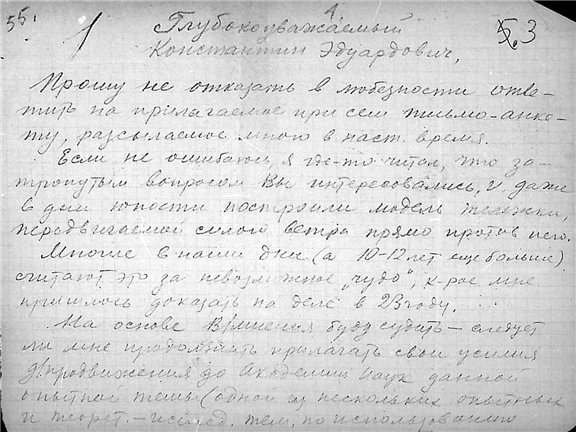 55. 1 4 5.3
Глубокоуважаемый
Константин Эдуардович,
Прошу не отказать в любезности отве-
тить на прилагаемое при сем письмо-анке-
ту, рассылаемое мною в наст. время.
Если не ошибаюсь, я где-то читал, что за-
тронутым вопросом Вы интересовались, и даже
в дни юности построили модель тележки,
передвигаемой силой ветра прямо против него.
Многие в наши дни (а 10-12 лет еще больше)
считают это за невозможное "чудо", к-рое мне
пришлось доказать на деле в 23 году.
На основе В/мнения буду судить — следует
ли мне продолжать прилагать свои усилия
продвижения до Академии Наук данной
опытной темы (одной из нескольких опытных
и теорет.-исслед. тем, по использованию